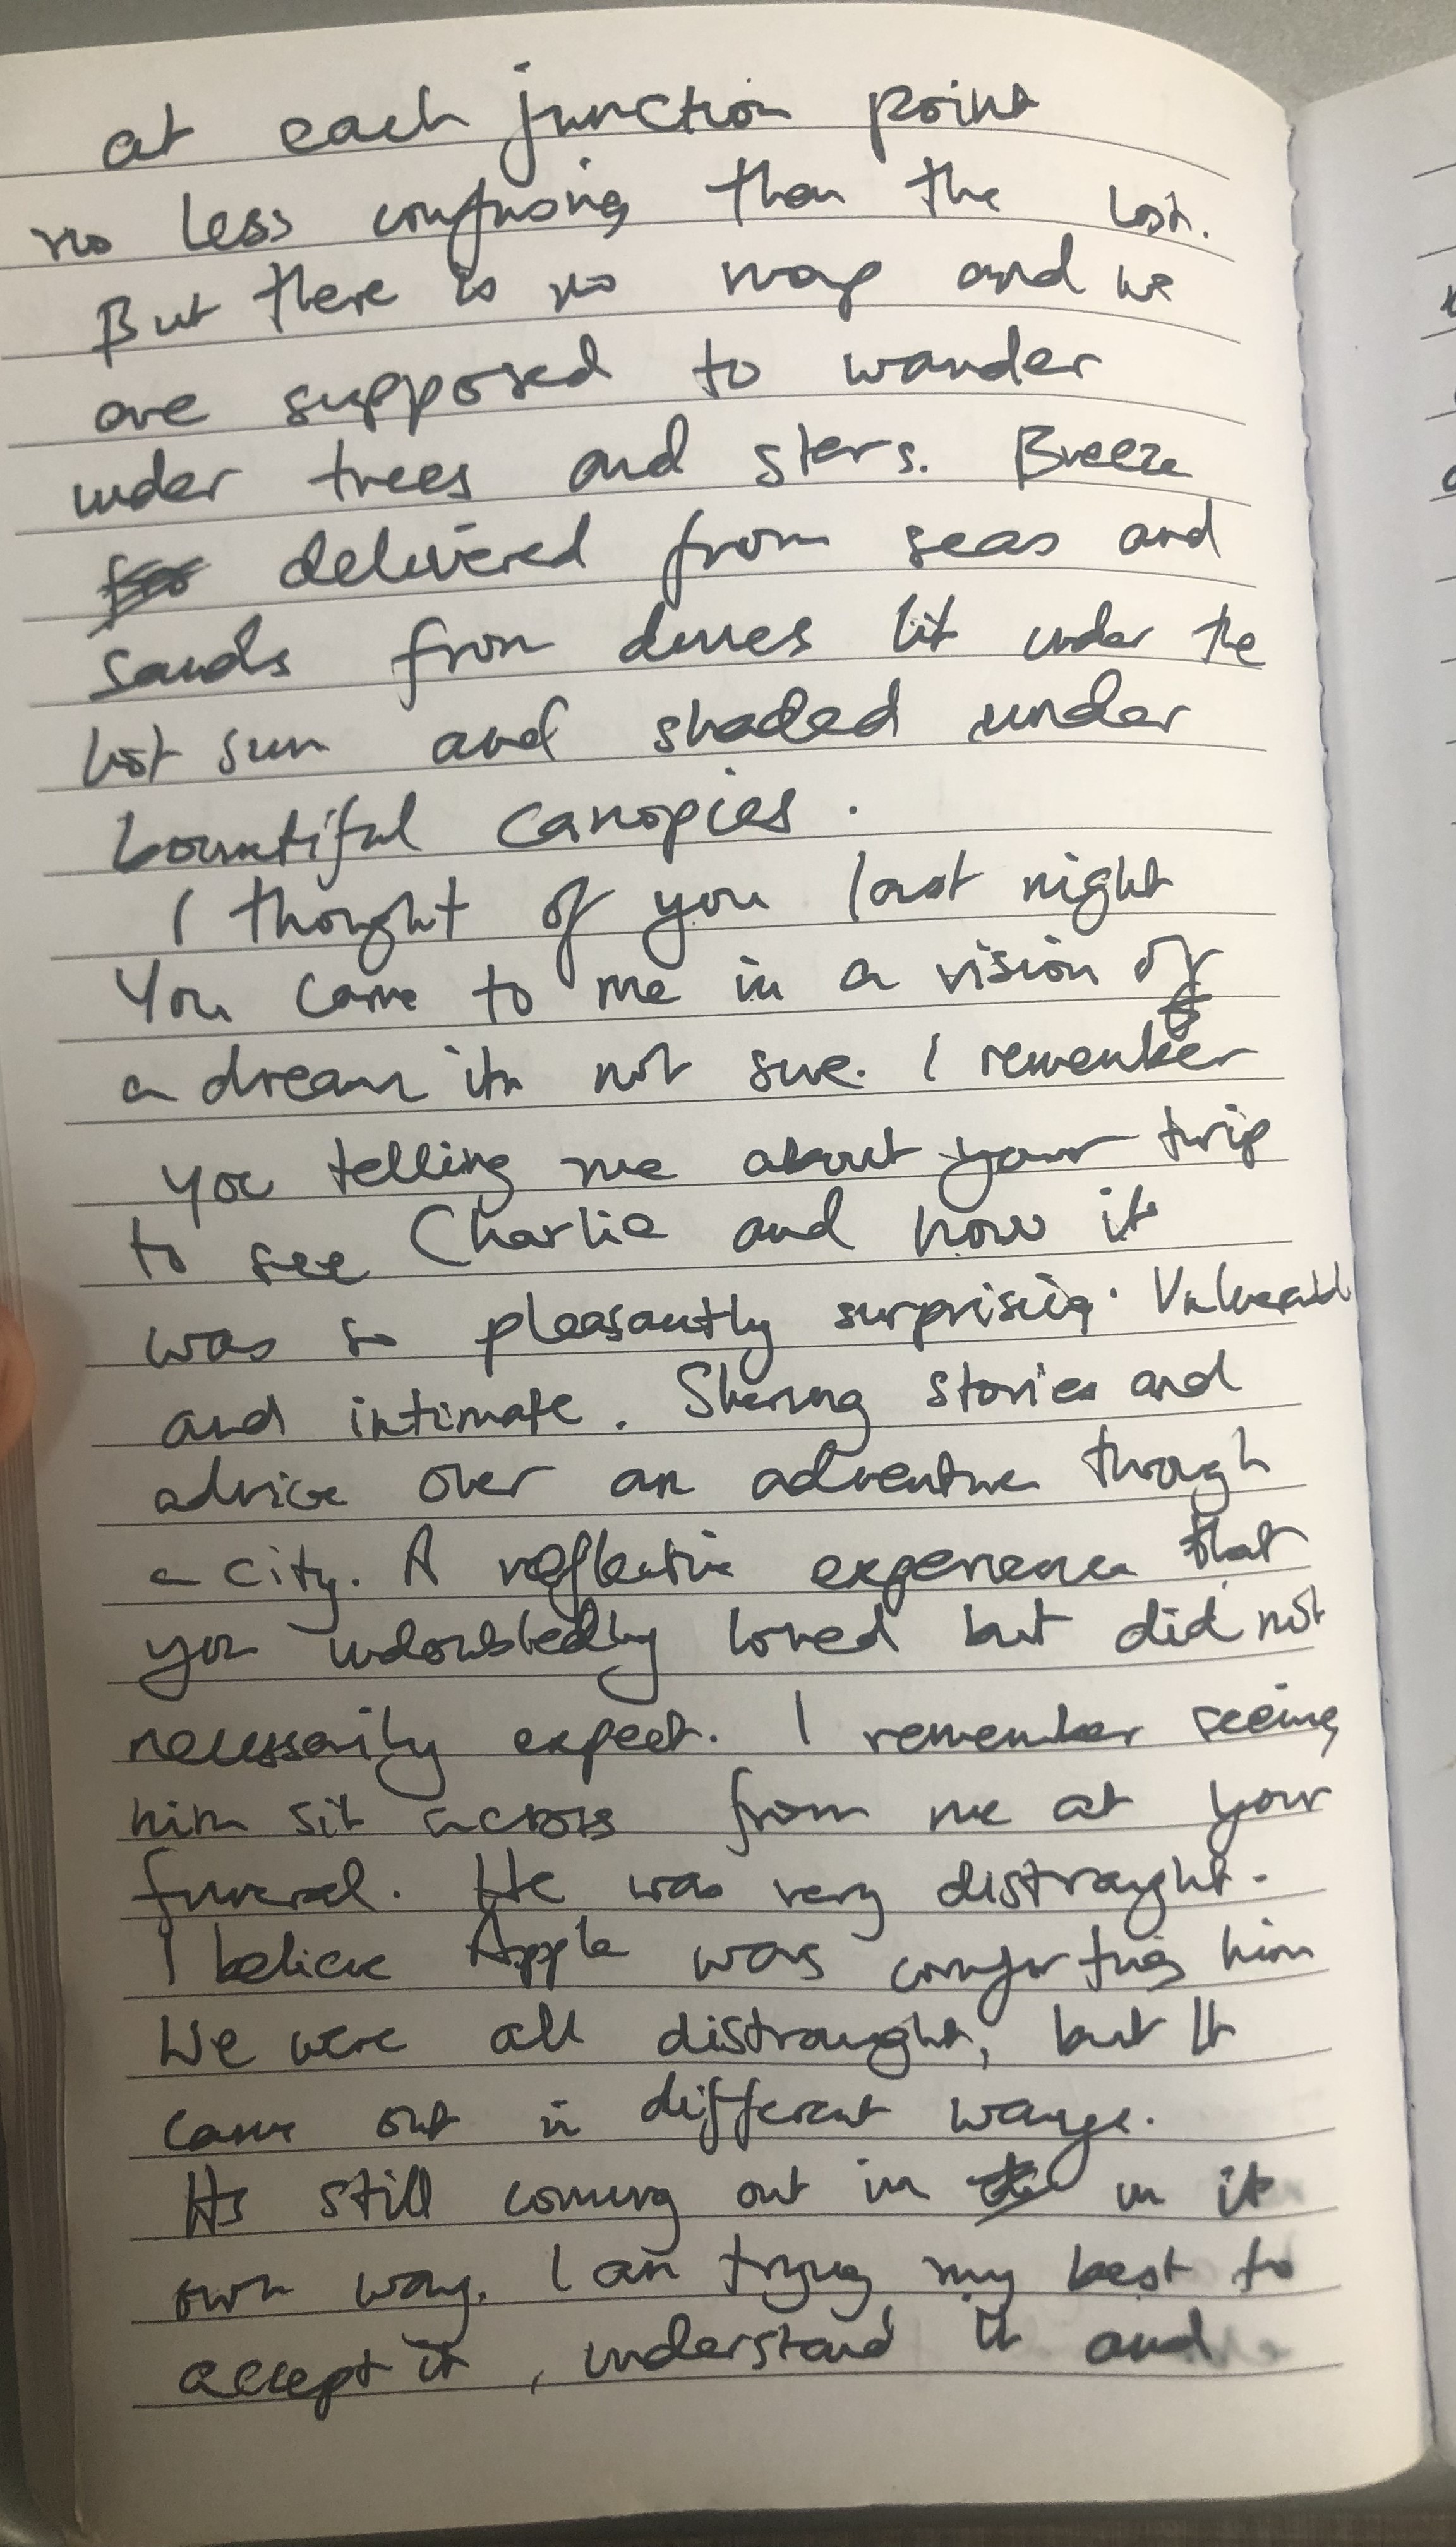 at each junction point
no less confusing than the last.
But there is no map and we
are supposed to wander
under trees and stars. Breeze
delivered from seas and
sands from dunes lit under the
hot sun and shaded under
bountiful canopies.
I thought of you last night
You came to me in a vision of
a dream im not sure. I remember
you telling me about your trip
to see Charlie and how it
was so pleasantly surprising.
and intimate. Sharing stories and
advice over an adventure through
a city. A reflective experience that
you undoubtedly loved but did not
necessarily expect. I remember seeing
him sit across from me at your
funeral. He was very distraught.
I believe Apple was comforting him
We were all distraught, but It
came out in different ways.
Its still coming out in in it
own way. I am trying my best to
accept it, understand it and